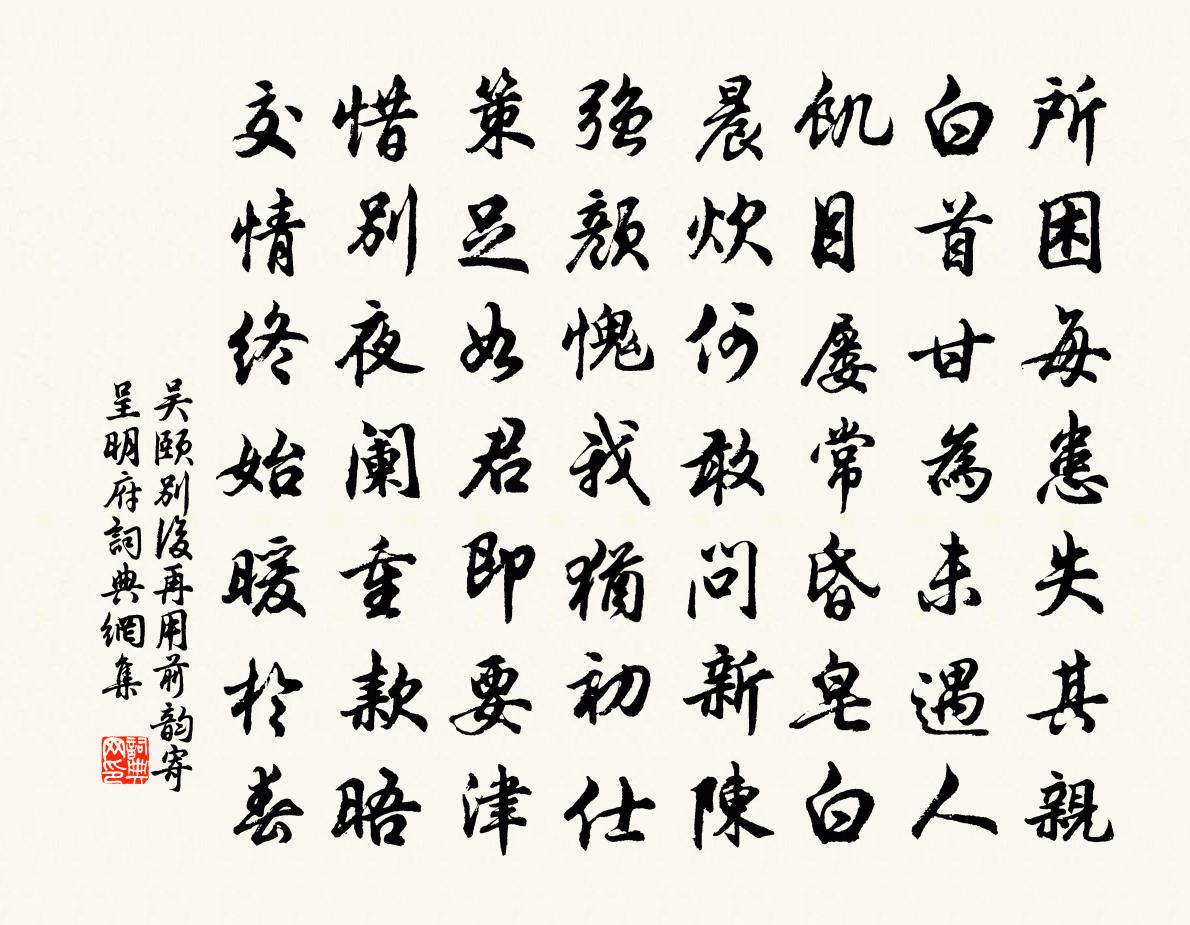 所困每患失其親
白首甘為未遇人
飢目屡常昏皂白
晨炊何敢問新陳
強顔愧我猶初仕
策足如君即要津
惜别夜阑重款晤
交情終始暖於春
吴頤别後再用前韵寄
呈明府詞典網集
詞典
网印